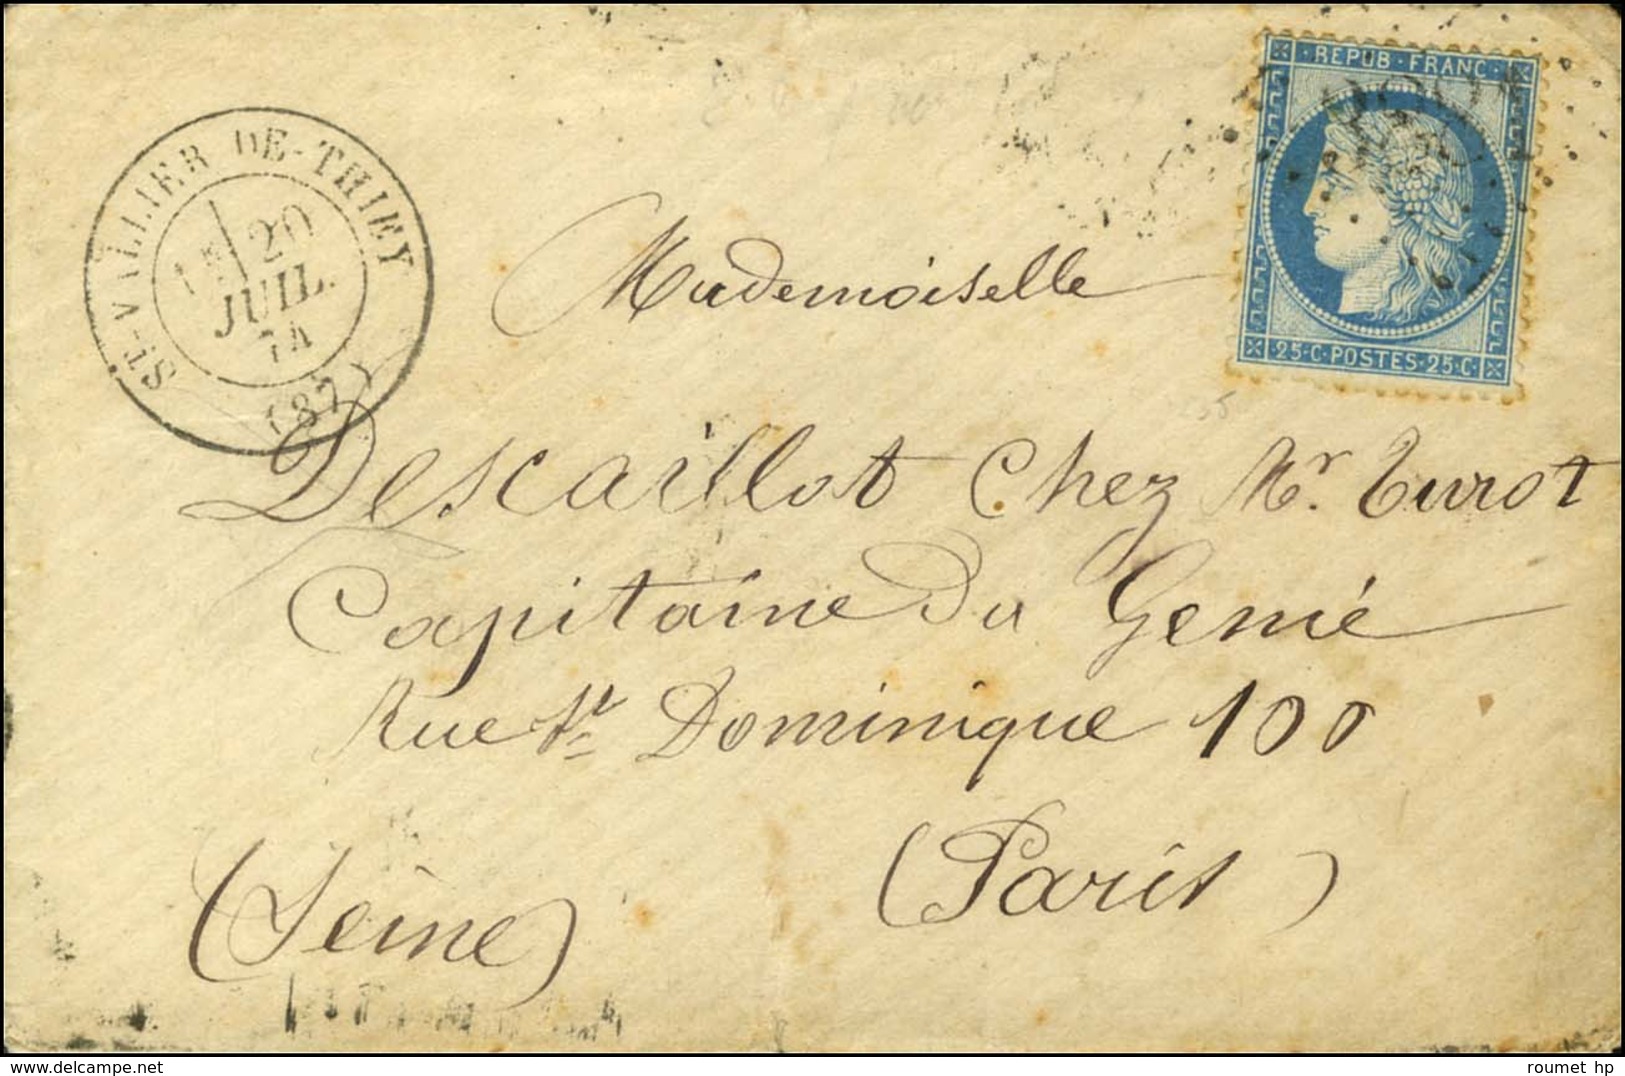 REPUB·FRANC·
ST-VALLIER DE-THIEY
20
JUIL.
74
(87)
25·C·POSTES·25·C·
Mademoiselle
Descaillot Chez Mr. Turot
Capitaine Du Genié
Rue St Dominique 100
(Paris)
(Seine)
www.delcampe.net
roumet hp